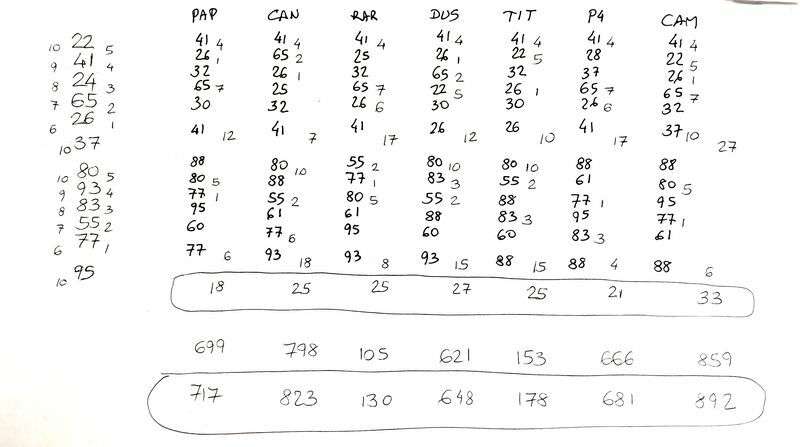 PAP CAN RAR DUS TIT P4 CAM
10 22 5 41 4 41 4 41 4 41 4 41 4 41 4 41 4
9 41 4 26 1 65 2 25 26 1 22 5 28 22 5
8 24 3 32 26 1 32 65 2 32 37 26 1
7 65 2 65 7 25 65 7 22 5 26 1 65 7 65 7
6 26 1 30 32 26 6 30 30 26 6 32
10 37 41 12 41 7 41 17 26 12 26 10 41 17 37 10 27
10 80 5 88 80 10 55 2 80 10 80 10 88 88
9 93 4 80 5 88 77 1 83 3 55 2 61 80 5
8 83 3 77 1 55 2 80 5 55 2 88 77 1 95
7 55 2 95 61 61 88 83 3 95 77 1
6 77 1 60 77 6 95 60 60 83 3 61
10 95 77 6 93 18 93 8 93 15 88 15 88 4 88 6
18 25 25 27 25 21 33
699 798 105 621 153 666 859
717 823 130 648 178 681 892